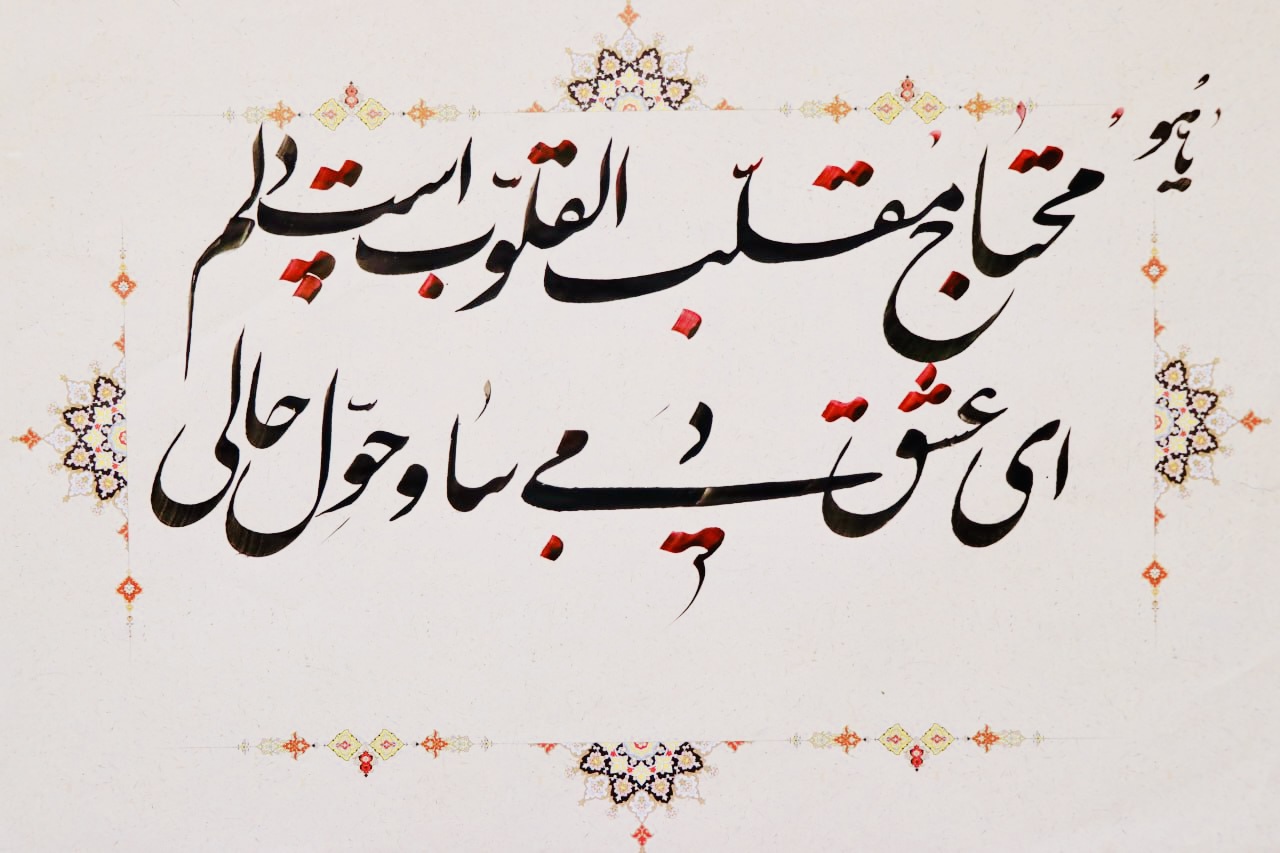 یا هو
محتاج مقلّب القلوب است دلم
ای عشق دمی بیا و حوّل حالی